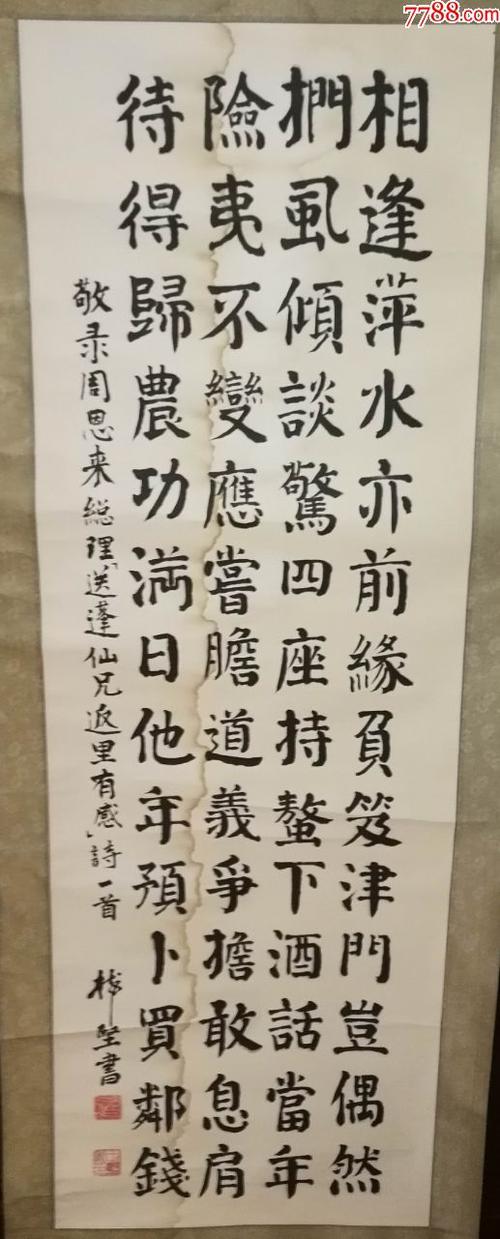 7788.com
相逢萍水亦前緣負笈津門豈偶然
捫虱傾談驚四座持螯下酒話當年
險夷不變應嘗膽道義爭擔敢息肩
待得歸農功満日他年預卜買鄰錢
敬录周恩来総理「送蓬仙兄返里有感」詩一首
坚書